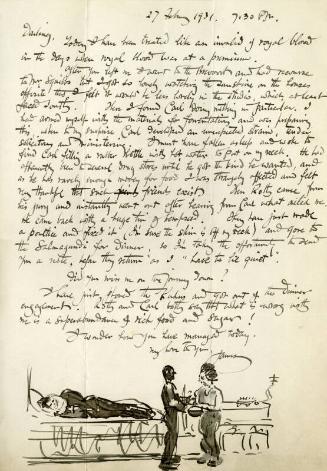 27 Feby 1931. 7:30 P.M.
Darling,
Today I have been treated like an invalid of royal blood
in the days when royal blood was at a premium.
After you left me I went to the and had recourse
to Mr. but I got so lonely watching the sunshine on the houses
opposite that I felt it would be less lonely in the studio, which at least
faced South. Here I found Carl doing nothing in particular. I
had armed myself with the materials for fomentations and was preparing
this, when to my surprise Carl developed an unexpected brain, tender
solicitous and ministering. I must have fallen asleep and woke to
find Carl filling a rubber bottle with hot water to
thoroughly. He went to several drug stores until he got the kind he wanted and
as he has rarely enough money for food I was strangely affected and felt
very thankful that such friends exist. Then Kelly came from
his and instantly went out after hearing from Carl what ailed me.
He came back with a huge tin of linseed. They have just made
a poultice and placed it (I'm sure the skin is off my neck) and gone to
the Salmagundi for dinner, so I'm taking the opportunity to send
you a note, before they return as I "have to be quiet".
Did you miss me on the journey down?
I have just and got out of the dinner
engagement. Kelly and Carl both say that what is wrong with
me is a superabundance of rich food and sugar!
I wonder how you have managed today.
my love to you,
James